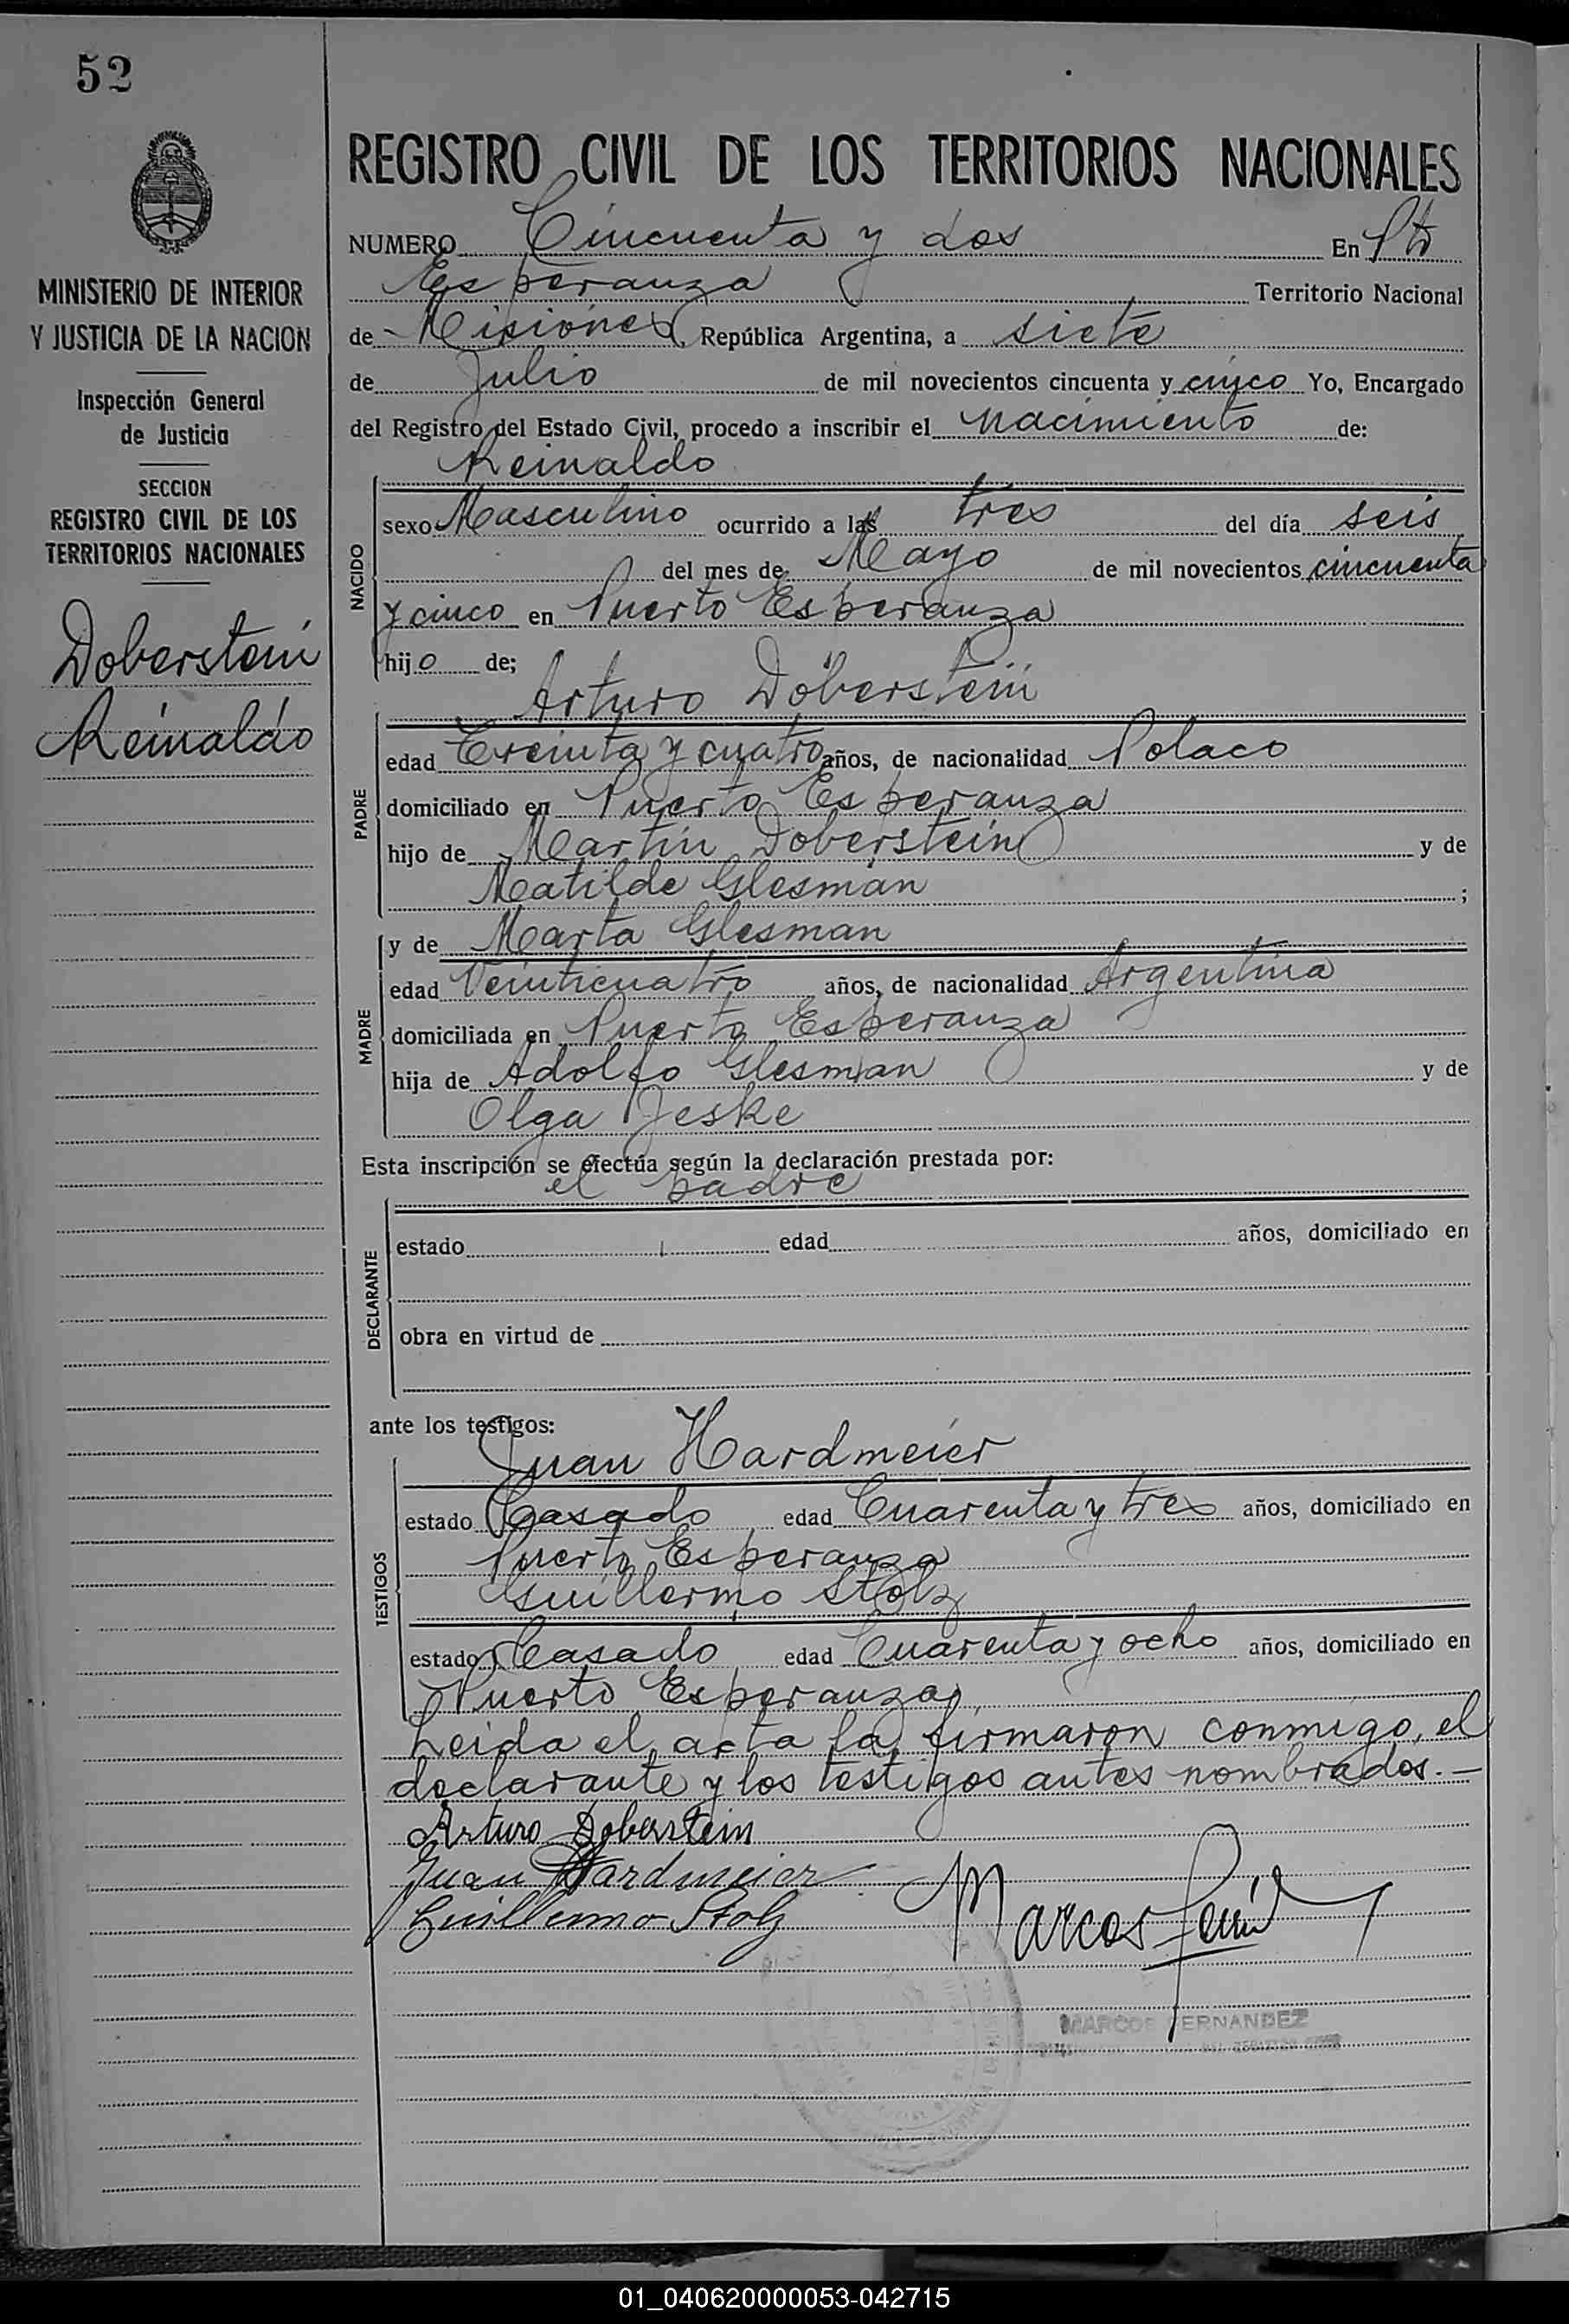 52
MINISTERIO DE INTERIOR
Y JUSTICIA DE LA NACION
Inspección General
de Justicia
SECCION
REGISTRO CIVIL DE LOS
TERRITORIOS NACIONALES
Doberstein
Reinaldo
REGISTRO CIVIL DE LOS TERRITORIOS NACIONALES
NUMERO Cincuenta y dos En Pto
Esperanza Territorio Nacional
de Misiones, República Argentina, a siete
de Julio de mil novecientos cincuenta y cinco Yo, Encargado
del Registro del Estado Civil, procedo a inscribir el nacimiento de:
Reinaldo
NACIDO
sexo Masculino ocurrido a las tres del día seis
del mes de Mayo de mil novecientos cincuenta
y cinco en Puerto Esperanza
hijo de;
Arturo Doberstein
PADRE
edad Treinta y cuatro años, de nacionalidad Polaco
domiciliado en Puerto Esperanza
hijo de Martin Doberstein y de
Matilde Glesman ;
y de Marta Glesman
MADRE
edad Veinticuatro años, de nacionalidad Argentina
domiciliada en Puerto Esperanza
hija de Adolfo Glesman y de
Olga Jeske
Esta inscripción se efectúa según la declaración prestada por:
el padre
DECLARANTE
estado edad años, domiciliado en
obra en virtud de
ante los testigos:
Juan Hardmeier
TESTIGOS
estado Casado edad Cuarenta y tres años, domiciliado en
Puerto Esperanza
Guillermo Stolz
estado Casado edad Cuarenta y ocho años, domiciliado en
Puerto Esperanza
Leida el acta la firmaron conmigo, el
declarante y los testigos antes nombrados.-
Arturo Doberstein
Juan Hardmeier
Guillermo Stolz
Marcos
MARCOS FERNANDEZ
01_040620000053-042715